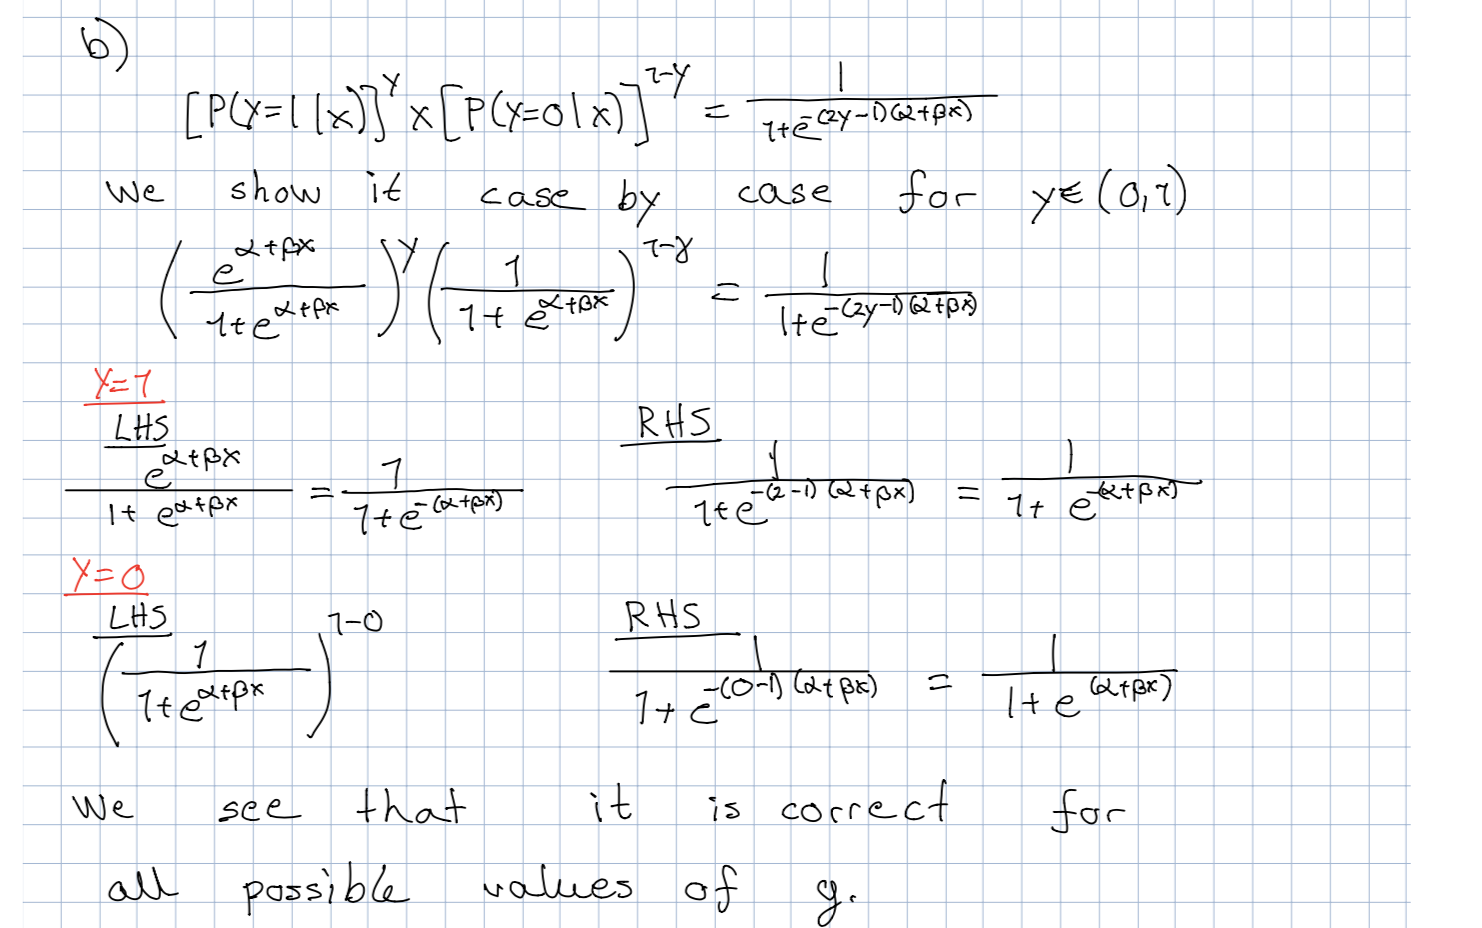 b)
[P(Y=1|x)]^y x [P(Y=0|x)]^{1-y} = \frac{1}{1+e^{-(2y-1)(α+βx)}}
we show it case by case for y∈(0,1)
(\frac{e^{α+βx}}{1+e^{α+βx}})^y (\frac{1}{1+e^{α+βx}})^{1-y} = \frac{1}{1+e^{-(2y-1)(α+βx)}}
Y=1
LHS RHS
\frac{e^{α+βx}}{1+e^{α+βx}} = \frac{1}{1+e^{-(α+βx)}} \frac{1}{1+e^{-(2-1)(α+βx)}} = \frac{1}{1+e^{-(α+βx)}}
Y=0
LHS RHS
(\frac{1}{1+e^{α+βx}})^{1-0} \frac{1}{1+e^{-(0-1)(α+βx)}} = \frac{1}{1+e^{(α+βx)}}
We see that it is correct for
all possible values of y.